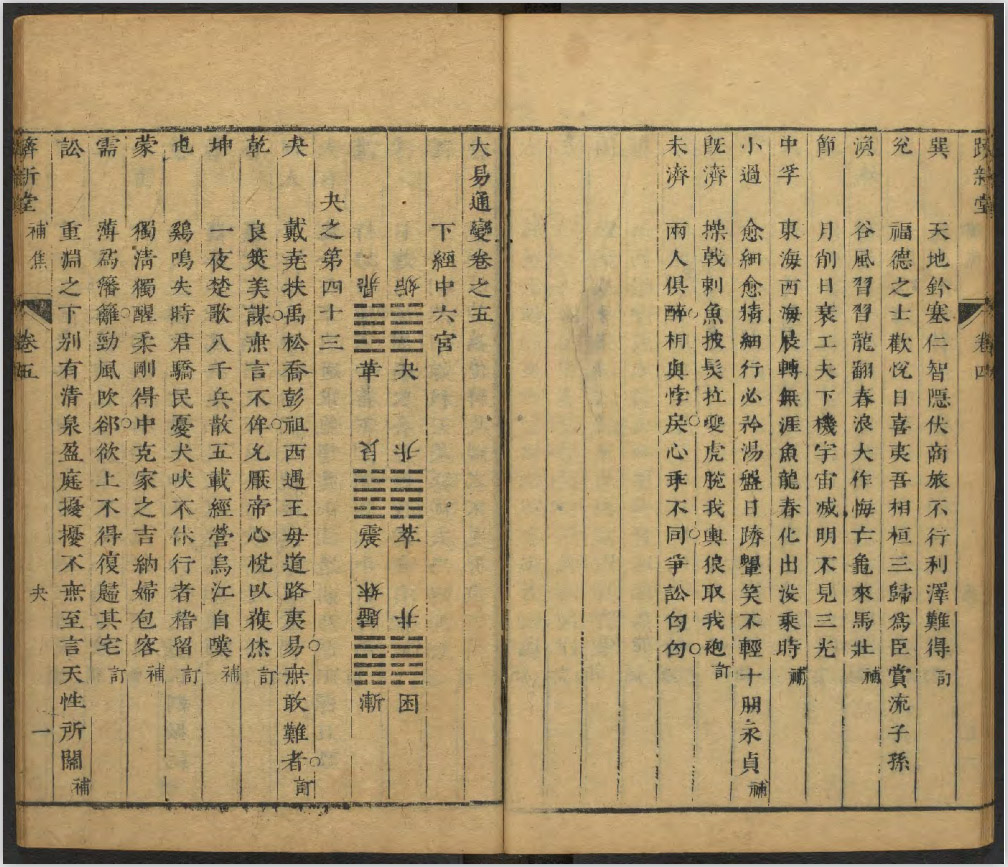 巽 天地䤴塞仁智隠伏商旅不行利澤難得訂
兊 福德之士歡恱日喜夷吾相桓三歸爲臣賞流子孫
渙 谷風習習龍翻春浪大作悔亡龜來馬壯補
節 月削日衰工夫下機宇宙减明不見三光
中孚 東海西海展轉無涯魚龍春化出没乘時補
小過 愈細愈猜細行必矜湯盤日躋顰笑不輕十朋永貞補
旣濟 操戟刺魚披髮拉虎腕我輿狼取我袍訂
未濟 兩人俱醉相與悖戾心乖不同爭訟匈匈
卷四
大易通變卷之五
下經中六宮
夬之第四十三
姤 夬 升 萃 井 困
鼎 革 艮 震 歸妹 漸
夬 戴堯扶禹松喬彭祖西遇王母道路夷易無敢難者訂
乾 良筴美謀無言不侔允厭帝心恱以獲休訂
坤 一夜楚歌八千兵散五載經營烏江自嘆補
屯 鷄鳴失時君驕民憂犬吠不休行者稽留訂
蒙 獨淸獨醒柔剛得中克家之吉納婦包容補
需 薄爲藩籬勁風吹郤欲上不得復歸其宅訂
訟 重淵之下别有清泉盈庭擾擾不無至言天性所關補
新堂 補焦 卷五 夬 一